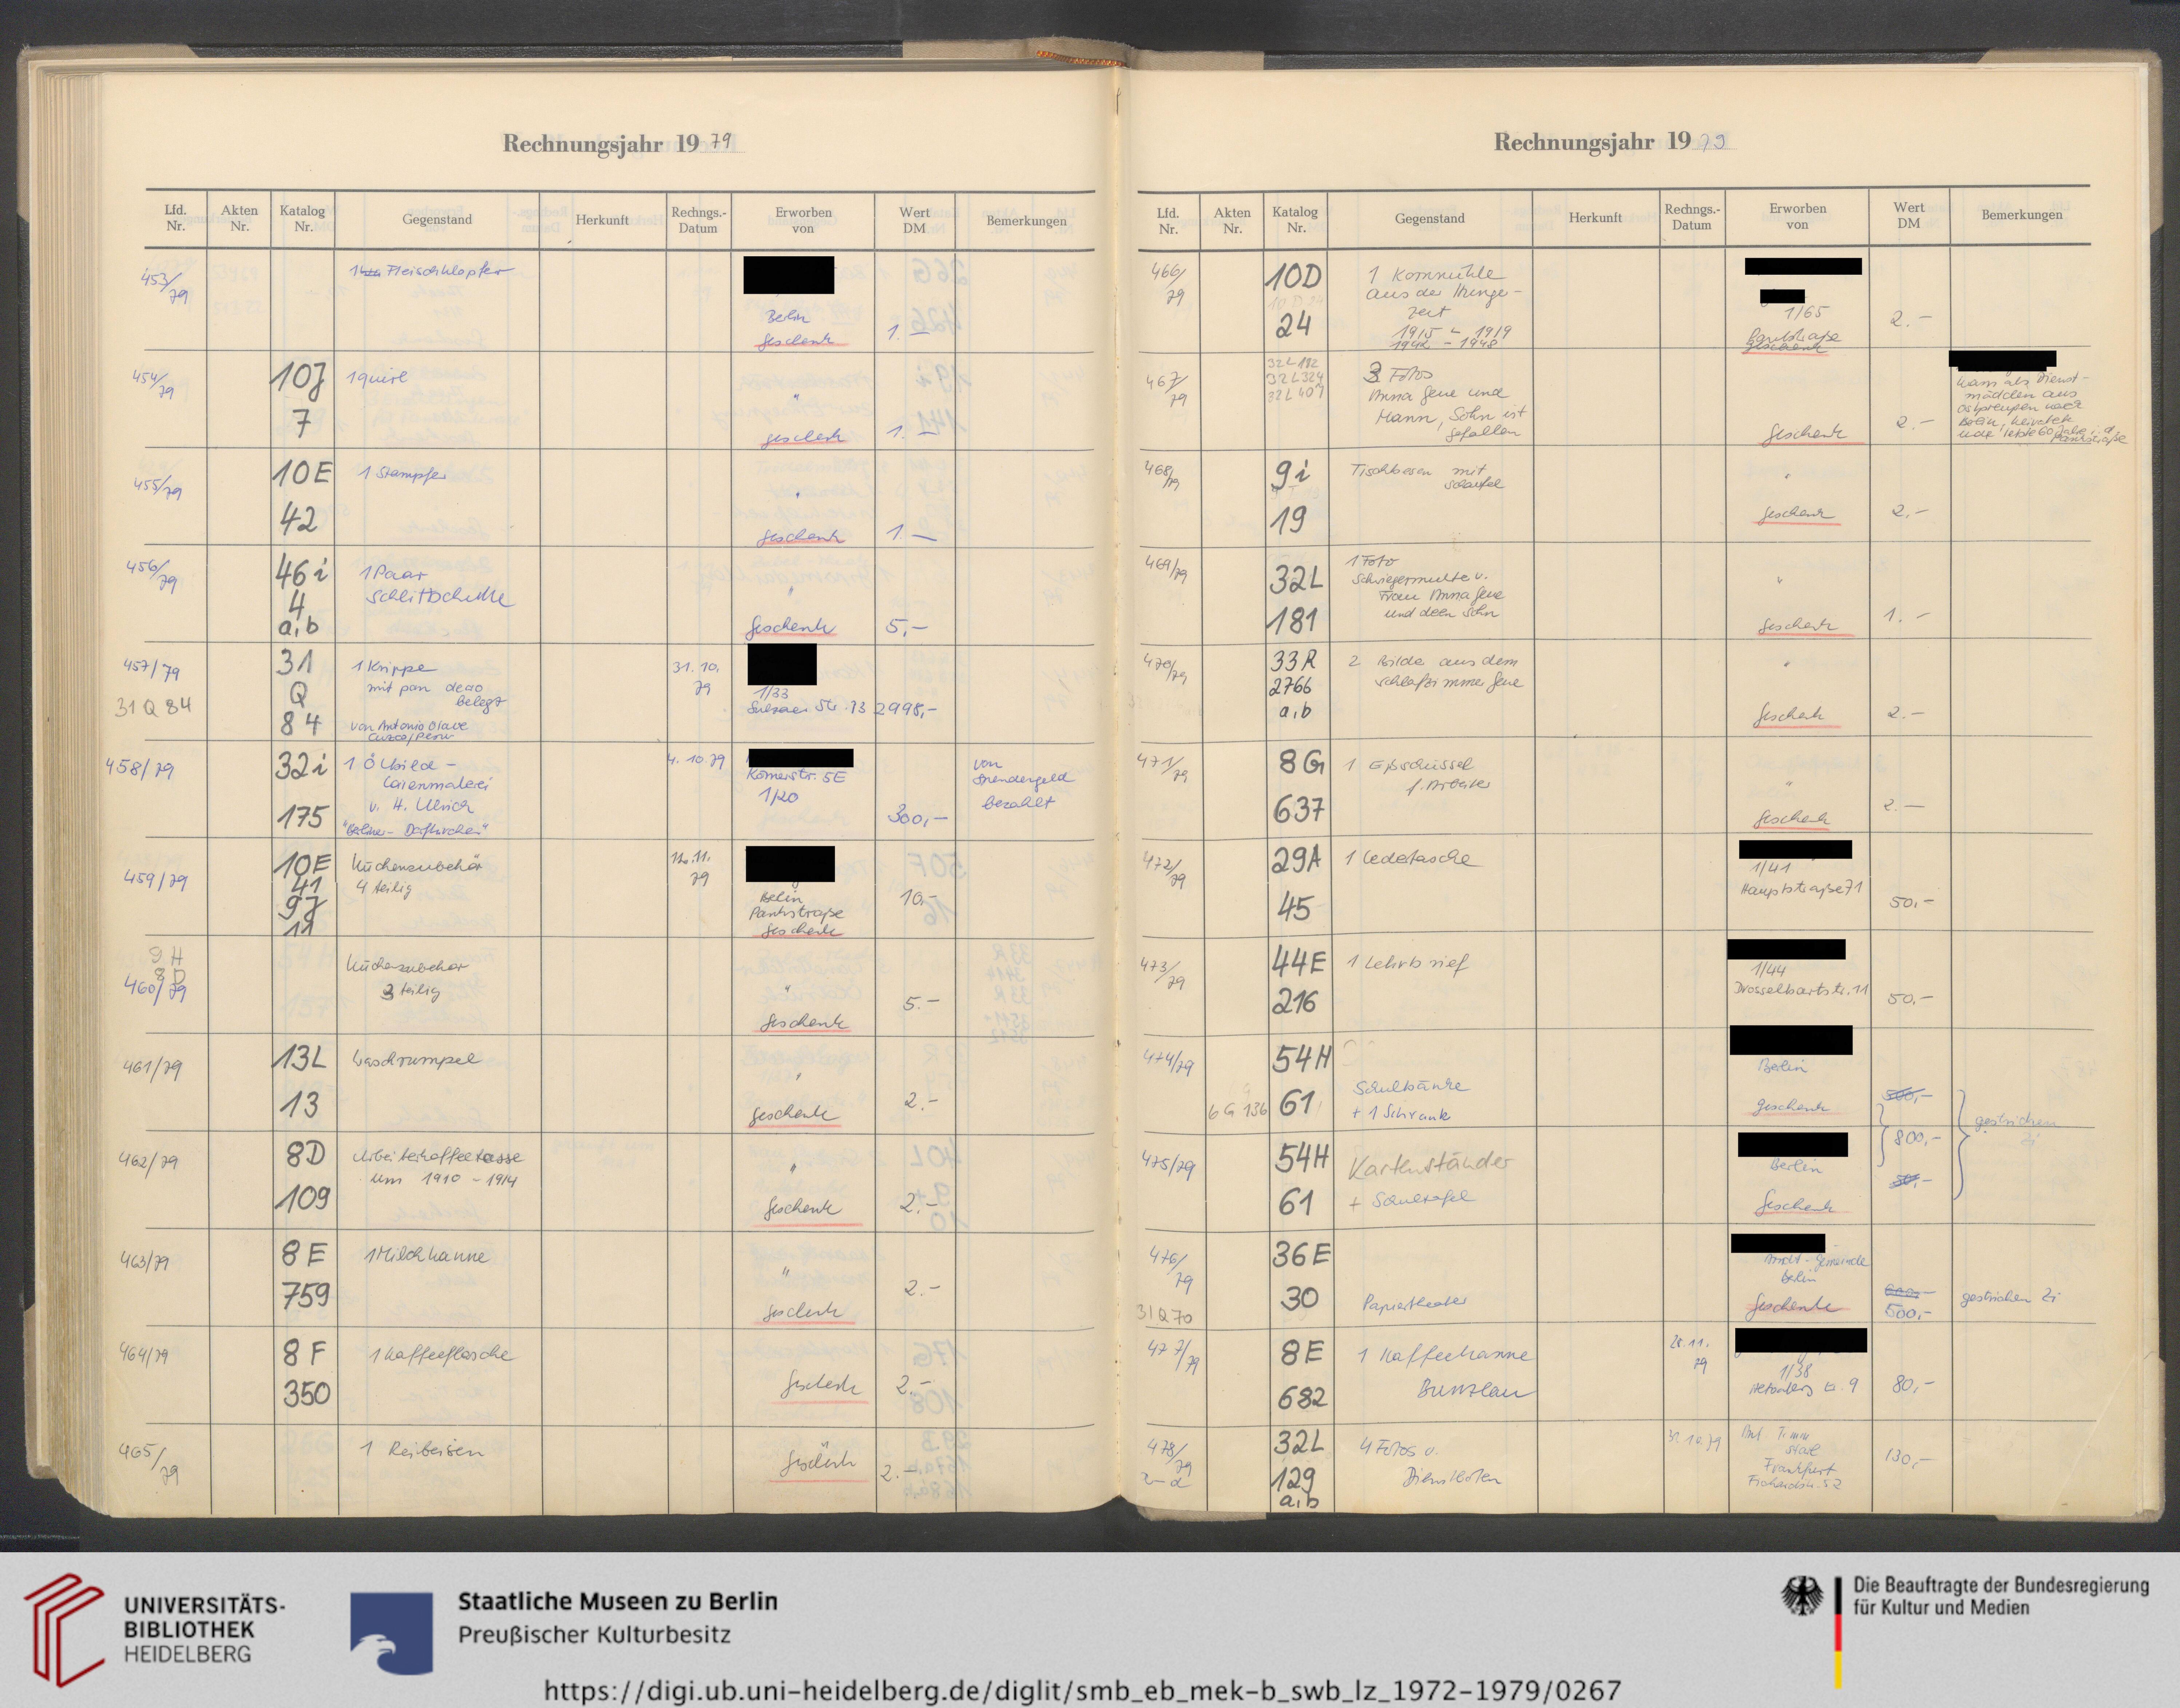 Rechnungsjahr 1979
Lfd. Nr.
Akten Nr.
Katalog Nr.
Gegenstand
Herkunft
Rechngs.-Datum
Erworben von
Wert DM
Bemerkungen
453/79
1 Fleischklopfer
Berlin
Geschenk
1.—
454/79
10J
7
1 Quirl
"
Geschenk
1.—
455/79
10E
42
1 Stampfer
"
Geschenk
1.—
456/79
46i
4
a,b
1 Paar
Schlittschuhe
"
Geschenk
5,-
457/79
31 Q 84
31
Q
84
1 Krippe
mit pan de oro
belegt
von Antonio Olave
Cuzco/Peru
31.10.
79
1/33
Str. 13
2998,-
458/79
32i
175
1 Ölbild -
Laienmalerei
v. H. Ulrich
"Berliner - Dorfkirchen"
4.10.79
Körnerstr. 5E
1/20
300,-
von
Spendergeld
bezahlt
459/79
10E
41
9J
11
Küchenzubehör
4 teilig
12.11.
79
Berlin
Pankstraße
Geschenk
10,-
9 H
8 D
460/79
Küchenzubehör
3 teilig
"
Geschenk
5.-
461/79
13L
13
Waschrumpel
"
Geschenk
2.-
462/79
8D
109
Arbeiterkaffeetasse
um 1910 - 1914
"
Geschenk
2.-
463/79
8E
759
1 Milchkanne
"
Geschenk
2.-
464/79
8F
350
1 Kaffeeflasche
Geschenk
2.-
465/79
1 Reibeisen
Geschenk
2.-
Rechnungsjahr 1979
Lfd. Nr.
Akten Nr.
Katalog Nr.
Gegenstand
Herkunft
Rechngs.-Datum
Erworben von
Wert DM
Bemerkungen
466/79
10D
24
1 Kornmühle
aus der Hunger-
zeit
1915 - 1919
1942 - 1948
1/65
Pankstraße
Geschenk
2.-
467/79
32 L 182
32 L 324
32 L 407
3 Fotos
Anna Gene und
Mann, Sohn ist
gefallen
Geschenk
2.-
kam als Dienst-
mädchen aus
Ostpreußen nach
Berlin, heiratete
und letzte 60 Jahre i. d.
Pankstraße
468/79
9i
19
Tischbesen mit
Schaufel
"
Geschenk
2,-
469/79
32L
181
1 Foto
Schwiegermutter v.
Frau Anna Gene
und deren Sohn
"
Geschenk
1.-
470/79
33R
2766
a,b
2 Bilder aus dem
Schlafzimmer Gene
"
Geschenk
2.-
471/79
8G
637
1 Eßschüssel
f. Arbeiter
"
Geschenk
2.-
472/79
29A
45
1 Ledertasche
1/41
Hauptstraße 71
50,-
473/79
44E
216
1 Lehrbrief
1/44
Drosselbartstr. 11
50.-
474/79
6 G 136
54H
61
Schulbänke
+ 1 Schrank
Berlin
Geschenk
500,-
800,-
gestrichen
Zi
475/79
54H
61
Kartenständer
+ Schultafel
Berlin
Geschenk
476/79
31 Q 70
36E
30
Papiertheater
Gemeinde
Berlin
Geschenk
500,-
gestrichen Zi
477/79
8E
682
1 Kaffeekanne
Bunzlau
28.11.
79
1/38
9
80,-
478/79
a-d
32L
129
a,b
4 Fotos v.
Dienstboten
31.10.79
Timm
Frankfurt
130,-
UNIVERSITÄTS-
BIBLIOTHEK
HEIDELBERG
Staatliche Museen zu Berlin
Preußischer Kulturbesitz
Die Beauftragte der Bundesregierung
für Kultur und Medien
https://digi.ub.uni-heidelberg.de/diglit/smb_eb_mek-b_swb_lz_1972-1979/0267